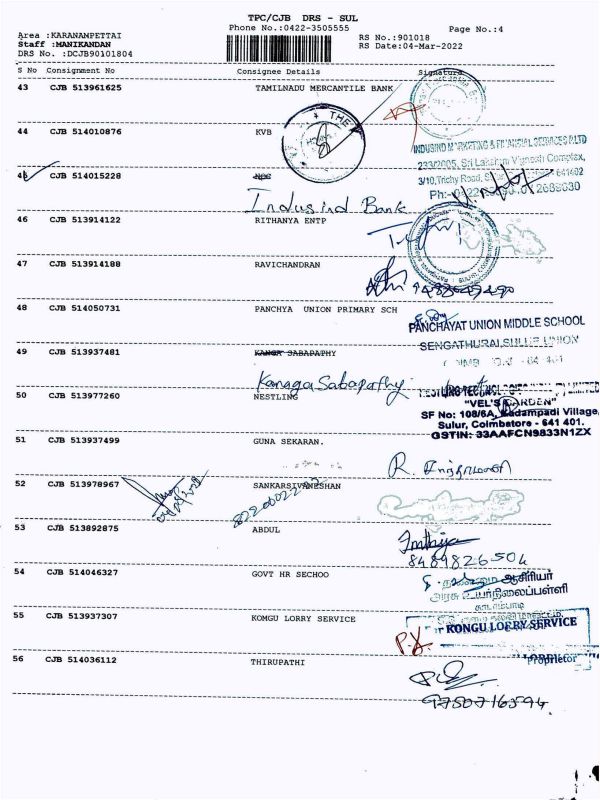 TPC/CJB DRS - SUL
Phone No.:0422-3505555
Page No.:4
Area :KARANAMPETTAI
Staff :MANIKANDAN
DRS No. :DCJB90101804
RS No.:901018
RS Date:04-Mar-2022
S No Consignment No Consignee Details Signature
43 CJB 513961625 TAMILNADU MERCANTILE BANK
44 CJB 514010876 KVB
THE
INDUSIND MARKETING & FINANCIAL SERVICES P LTD
233/2005, Sri Lakshmi Vignesh Complex,
3/10, Trichy Road, 641402
45 CJB 514015228
Indusind Bank
46 CJB 513914122 RITHANYA ENTP
47 CJB 513914188 RAVICHANDRAN
48 CJB 514050731 PANCHYA UNION PRIMARY SCH
PANCHAYAT UNION MIDDLE SCHOOL
SENGATHURAI, SULUR UNION
49 CJB 513937481 KANGA SABAPATHY
Kanaga Sabapathy
50 CJB 513977260 NESTLING
"VEL'S GARDEN"
SF No: 108/6A, Kadampadi Village,
Sulur, Coimbatore - 641 401.
GSTIN: 33AAFCN9833N1ZX
51 CJB 513937499 GUNA SEKARAN.
52 CJB 513978967 SANKARSIVANESHAN
53 CJB 513892875 ABDUL
8489826504
54 CJB 514046327 GOVT HR SECHOO
ஆசிரியர்
அரசு உயர்நிலைப்பள்ளி
காடாம்பாடி
55 CJB 513937307 KOMGU LORRY SERVICE
KONGU LORRY SERVICE
Proprietor
56 CJB 514036112 THIRUPATHI
9750716594